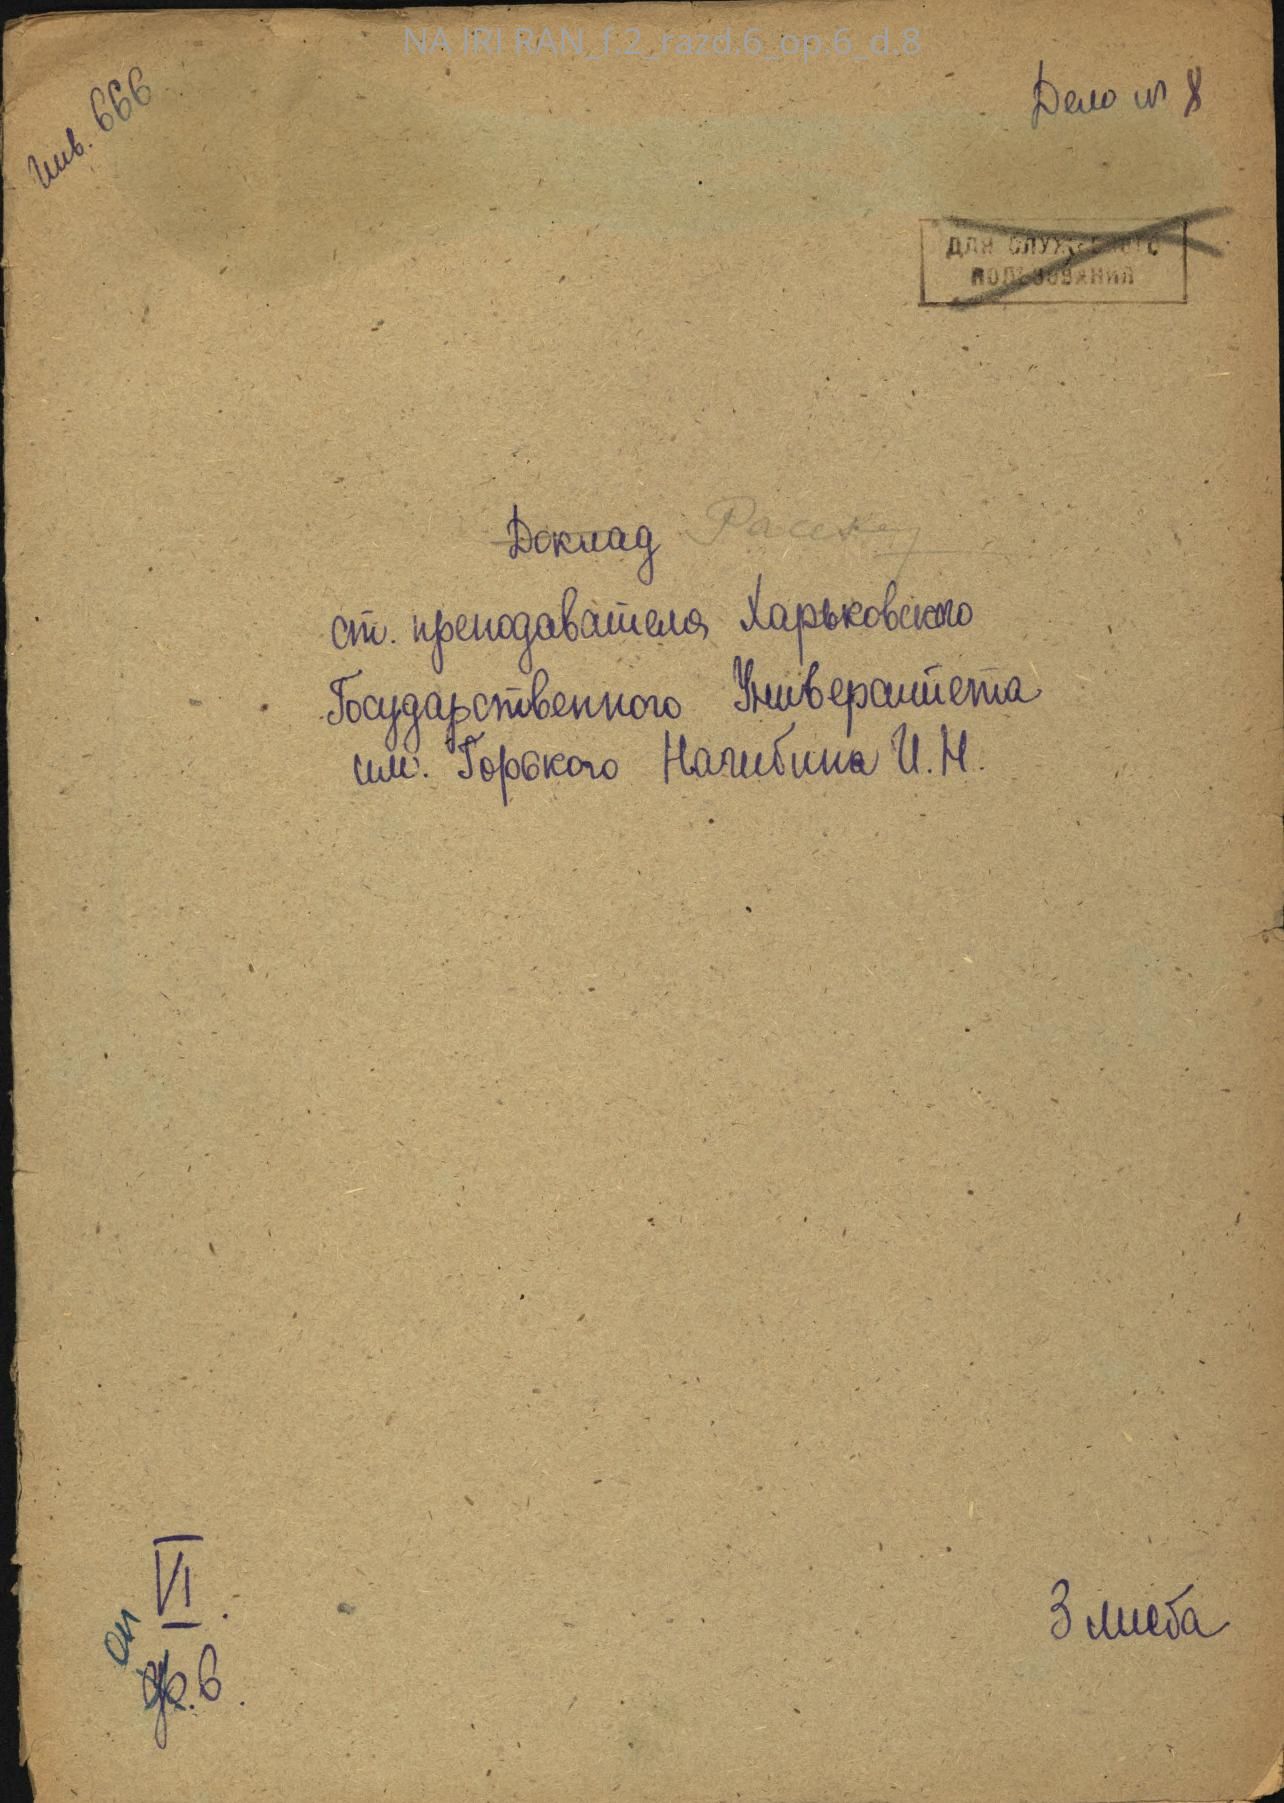 NA IRI RAN_f.2_razd.6_op.6_d.8
Инв. 666
Дело № 8
ДЛЯ СЛУЖЕБНОГО
ПОЛЬЗОВАНИЯ
Доклад
ст. преподавателя Харьковского
Государственного Университета
им. Горького Нагибина И.Н.
VI.
оп
ф. 6.
3 листа